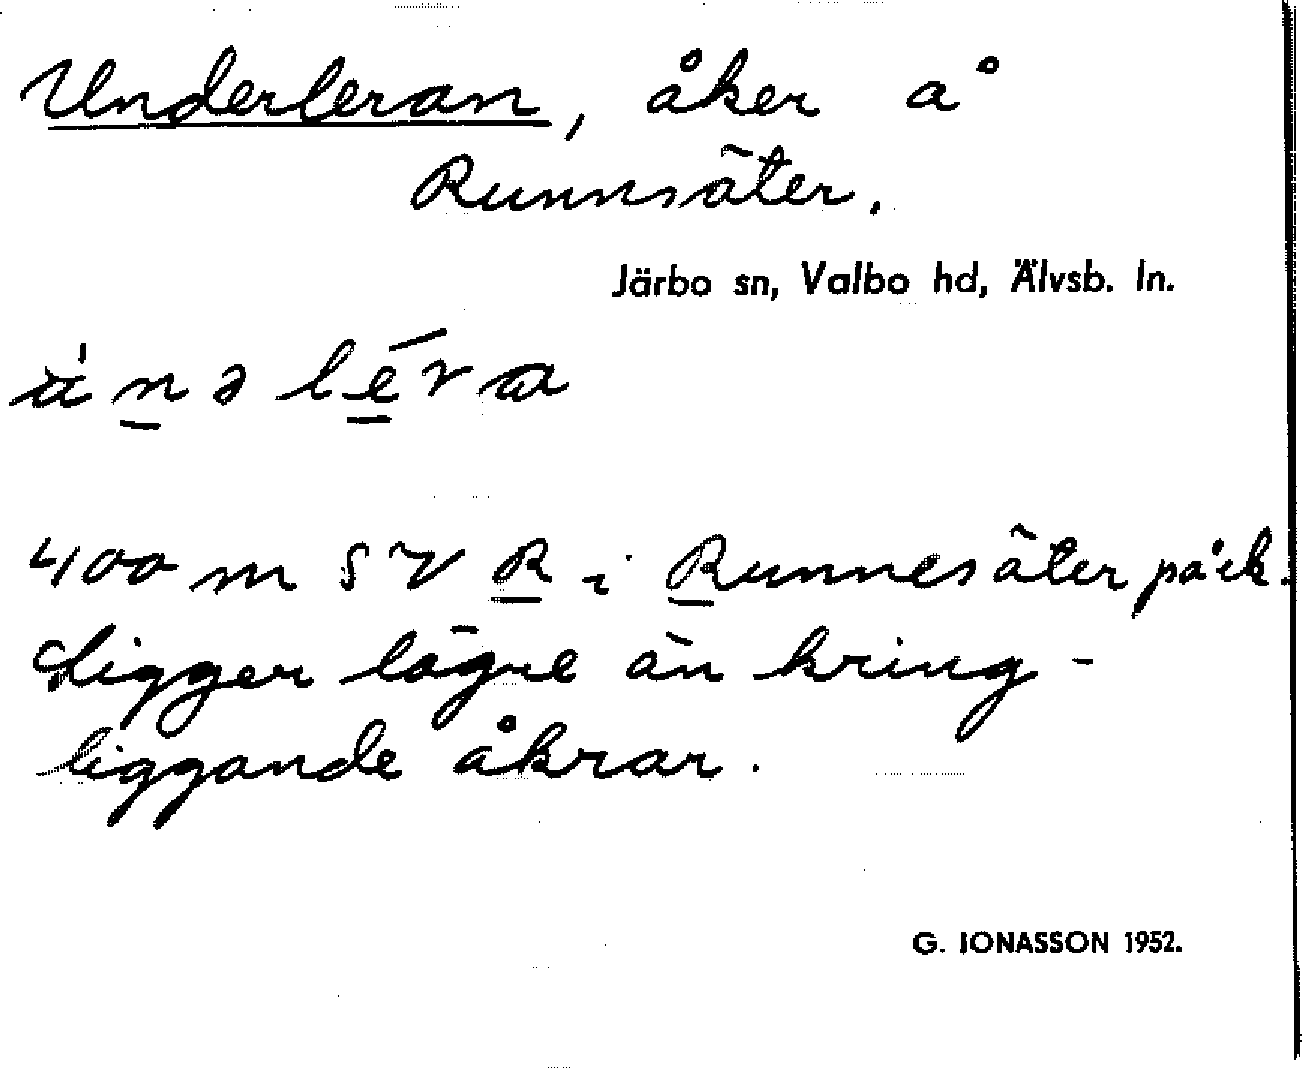 Underleran, åker å
Runnsäter.
Järbo sn, Valbo hd, Älvsb. ln.
400 m SV R i Runnesäter på ek.
Ligger lägre än kring-
liggande åkrar.
G. JONASSON 1952.